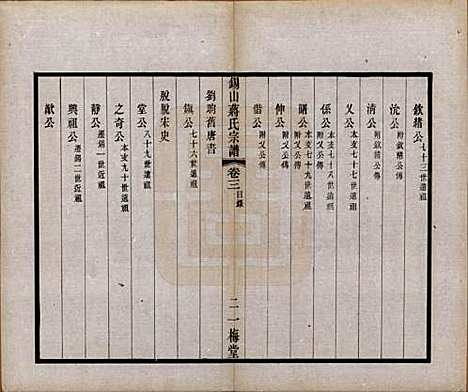 欽緒公七十三世
沇公附欽緒公傳
清公附欽緒公傳
乂公本支七十七世祖
係公本支七十八世祖
曙公本支七十九世祖
伸公附乂公傳
偕公附乂公傳
錫山蔣氏宗譜
卷三目錄
二一梅堂
劉昫舊唐書
鎮公七十六世祖
脫脫宋史
堂公八十九世祖
之奇公本支九十世遠祖
靜公遷錫一世近祖
興祖公遷錫二世近祖
猷公